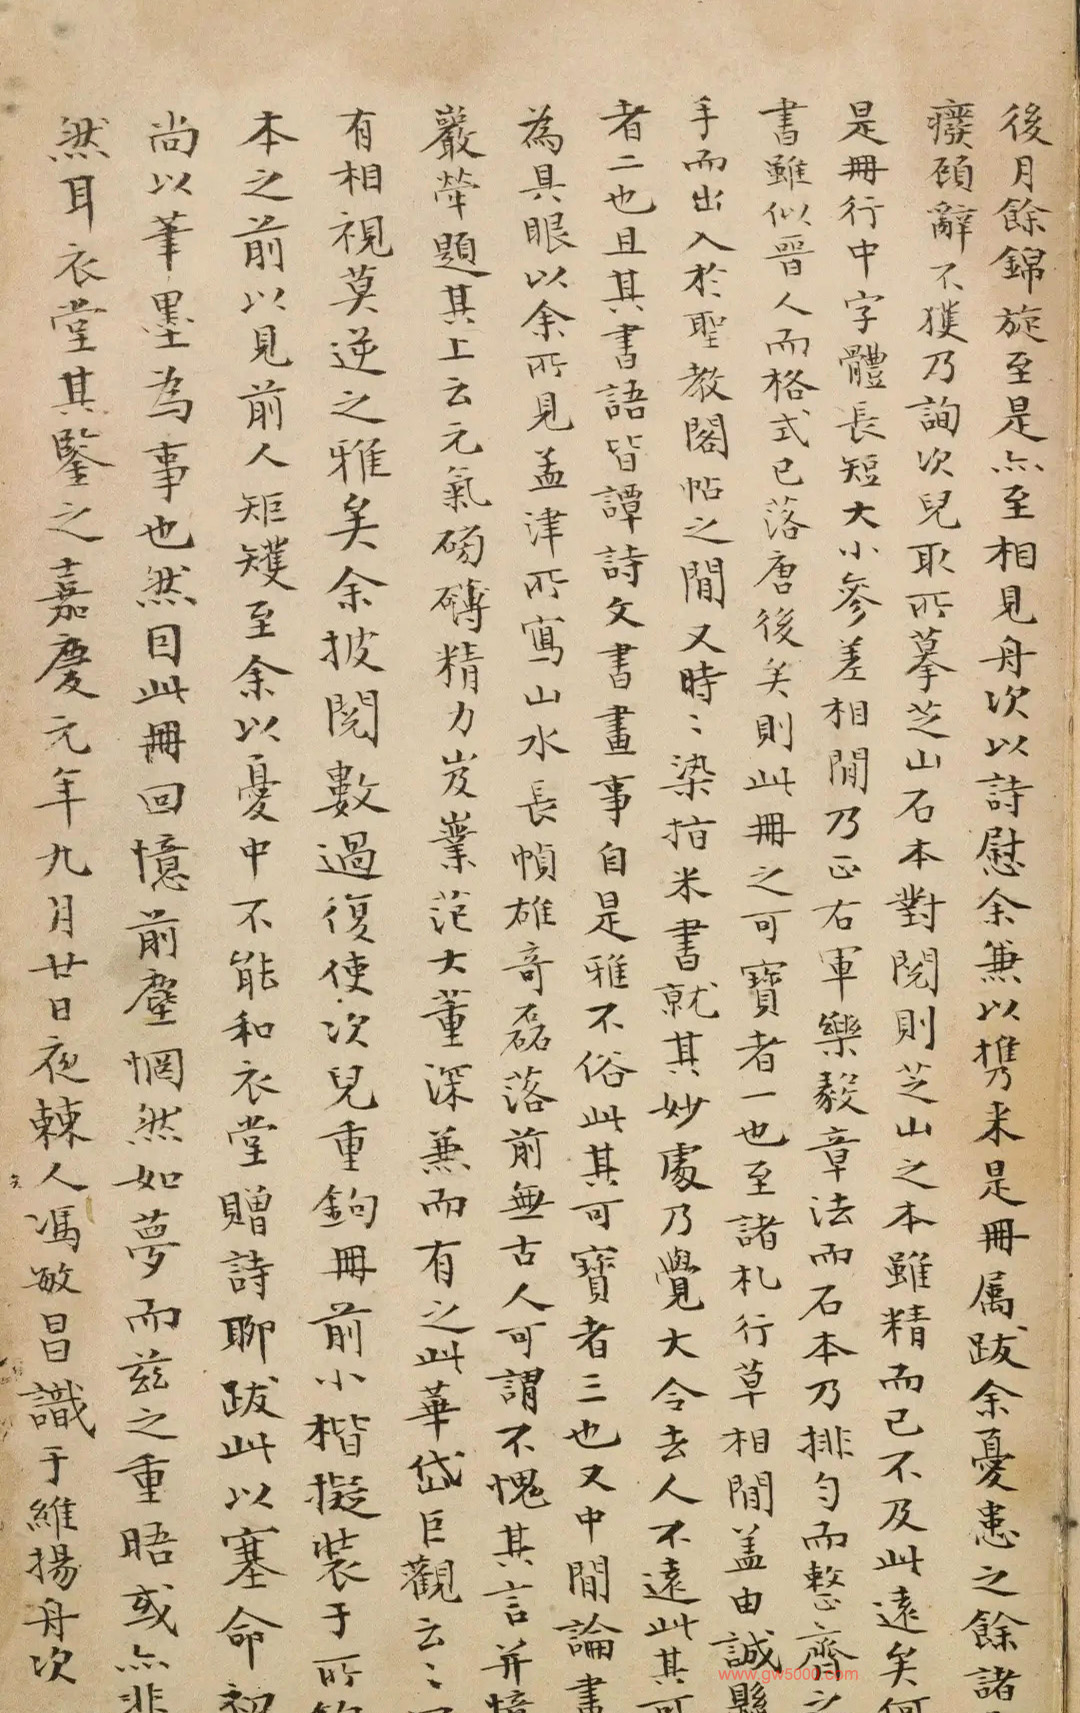 後月餘錦旋至是亦至相見舟次以詩慰余兼以携来是冊属跋余憂患之餘諸
癈頋辭不獲乃詢次兒取所摹芝山石本對閱則芝山之本雖精而已不及此遠矣何
是冊行中字體長短大小參差相間乃正右軍樂毅章法而石本乃排勻而整齊之
書雖似晋人而格式已落唐後矣則此冊之可寶者一也至諸札行草相間盖由誠懸
手而出入於聖教閣帖之間又時〻染指米書就其妙處乃覺大令去人不遠此其可
者二也且其書語皆譚詩文書畫事自是雅不俗此其可寶者三也又中間論書
為具眼以余所見孟津所寫山水長幀雄竒磊落前無古人可謂不愧其言并憶
巖犖題其上云元氣磅礴精力岌嶪范大董深兼而有之此華岱巨觀云〻
有相視莫逆之雅矣余披閱數過復使次兒重鉤冊前小楷擬裝于所鉤
本之前以見前人矩矱至余以憂中不能和衣堂贈詩聊跋此以塞命初
尚以筆墨為事也然因此冊回憶前塵惘然如夢而兹之重晤或亦非
然耳衣堂其鑒之嘉慶元年九月廿日夜棘人馮敏昌識于維揚舟次
www.gw5000.com